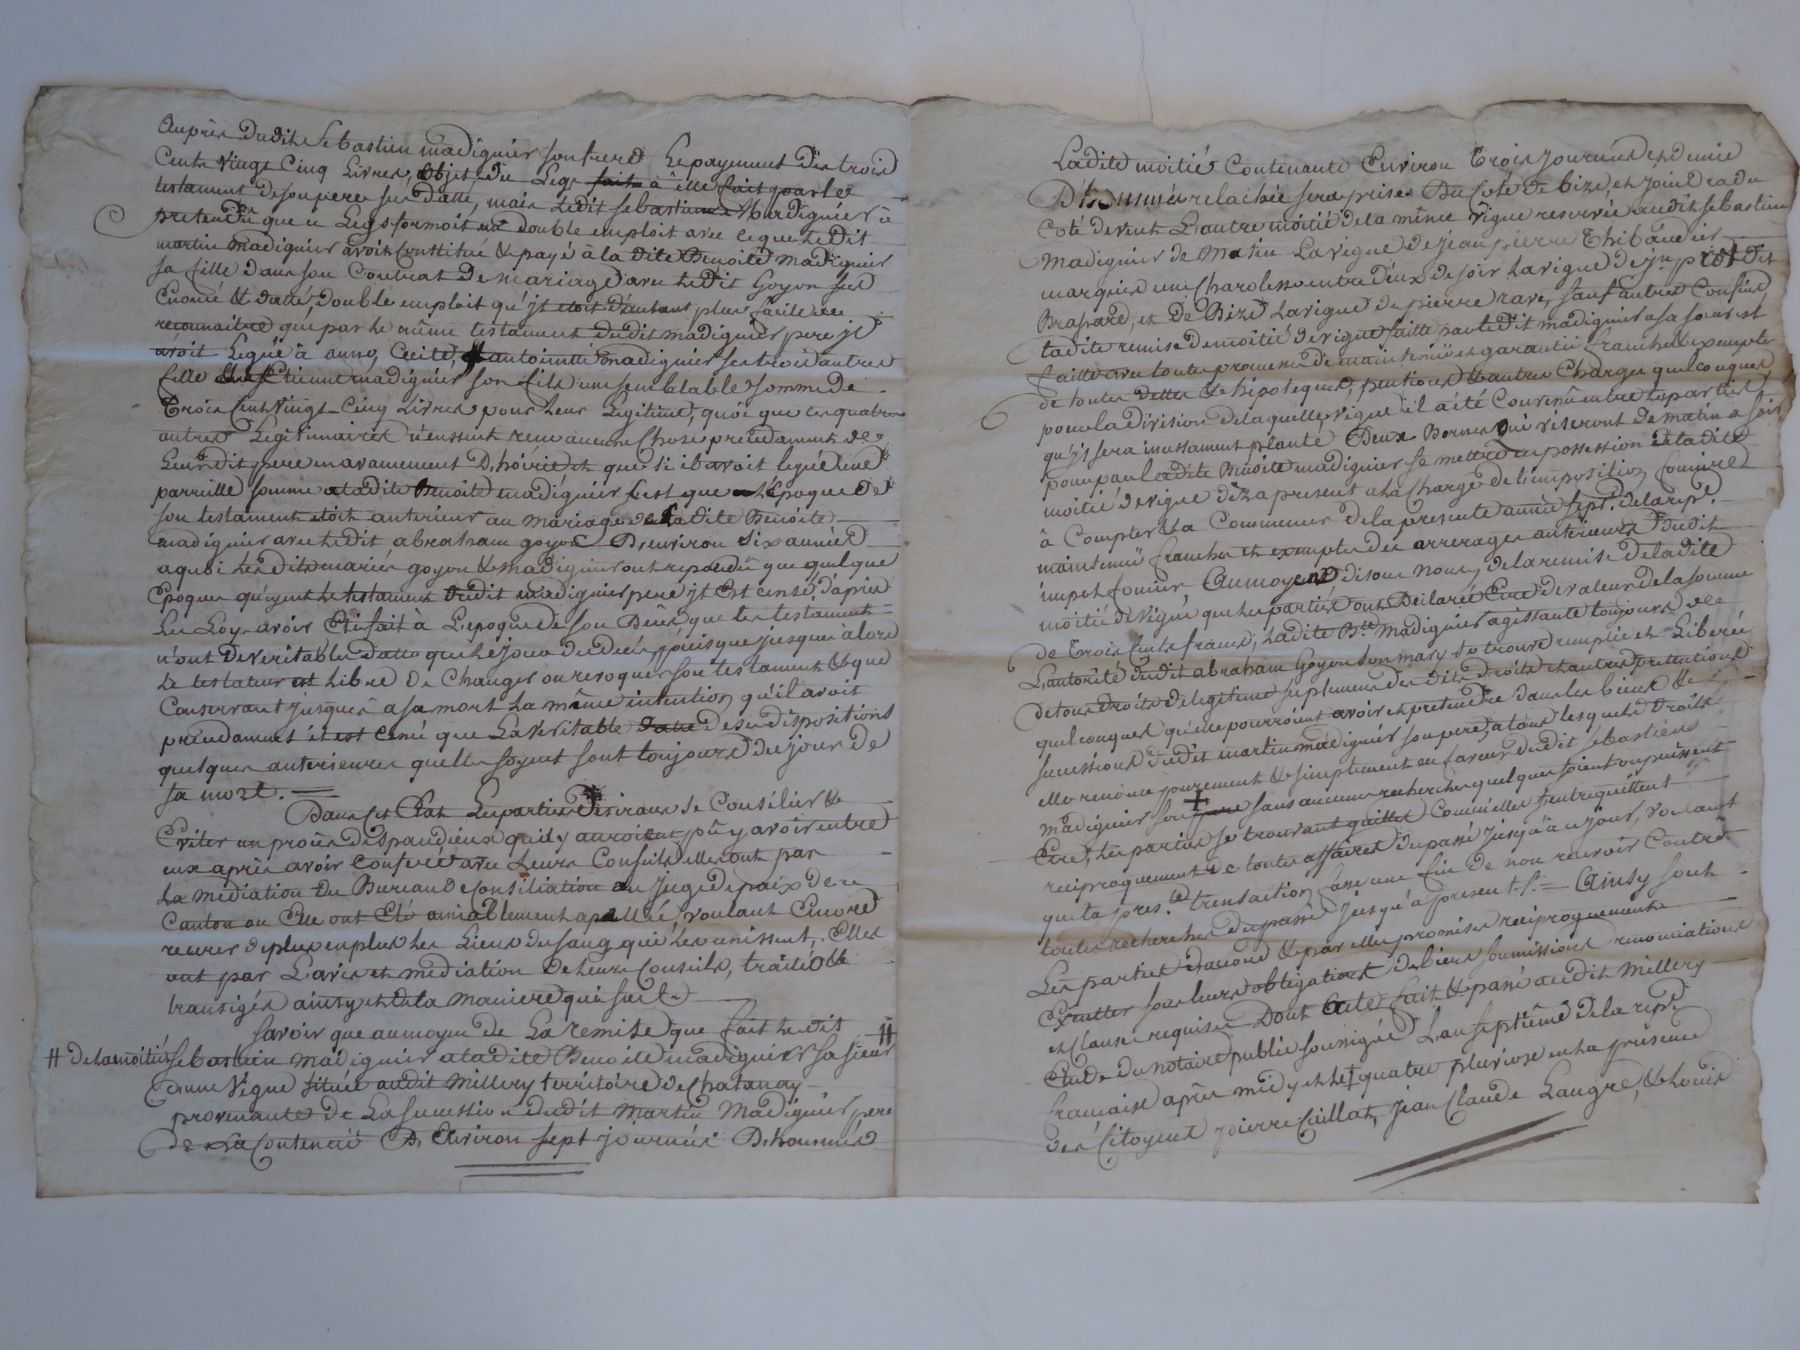 Auprès dudit Sebastien madignier son frere Le payement des trois
Cents Vingt Cinq Livres, Objet du Legs fait à elle fait par le
testament de son pere sus datté, mais ledit sebastien Madignier à
pretendû que ce Legs formoit un double emploit avec ce que Ledit
martin Madignier avoit Constitué & payé à la dite Benoite Madignier
sa fille dans son Contrat De mariage avec Ledit Goyon sus
Enoncé & datté, double emploit qu'jl etoit d'autant plus facile de
reconnaitre que par Le même testament dudit madignier pere jl
avoit Legué à anne, Cecile, & antoinette madignier ses trois autres
fille & Etienne madignier son fils une semblable somme de
Trois Cents Vingt-Cinq Livres pour Leur Legitime, quoi que ces quatres
autres Legitimaires n'eussent reçu aucune Chose precedamment de
Leur dit pere en avancement D'hoirie et que si il avoit legué une
parreille somme a ladite Benoite madignier c'est que L'Epoque de
son testament etoit anterieur au mariage de Ladite Benoite
madignier avec Ledit abraham goyon D'environ six années
a quoi Lesdits mariés goyon & madignier ont repondu que quelque
Epoque qu'ayent Le testament dudit madignier pere jl Est censé d'après
Les Loys avoir Eté fait à L'epoque de son Décès que les testaments
n'ont de veritables datte que Le jour du decès puisque jusques àlors
Le testateur est Libre De Changer ou revoquer son testament & que
Conservant jusques a sa mort La même intention qu'il avoit
precedamment il est Censé que La Veritable Datte de ses dispositions
quelques anterieures quelles soyent sont toujours du jour de
sa mort.
Dans cet Etat Les parties Desirans se Consilier &
Eviter un procès dispendieux qu'il y auroient pû y avoir entre
eux après avoir Conferé avec Leurs Conseils elles ont par
La mediation du Bureau de Consiliation du Juge de paix de ce
Canton ou Elle ont Eté amiablement apellé, voulant Encore
recerer de plus en plus Les Liens du sang qui Les unissent, Elles
ont par L'avis et mediation de Leurs Conseils, traité &
transigés ainsy et de la maniere qui suit
savoir que au moyen de La remise que fait Ledit
# de La moitié Sebastien Madignier a ladite Benoite madignier sa sœur #
d'une Vigne située audit Millery territoire de Chatanay
provenante de La succession dudit Martin Madignier pere
de La Contenue D'Environ sept journées D'hommes
Ladite moitié Contenante Environ Trois journées et demie
D'hommes relachée sera prise Du Coté de bize, et joindra du
Coté de vent L'autre moitié de la même vigne reservée audit sebastien
Madignier de Matin La vigne de jean pierre Thibaudier
marquise une Charolesse entre deux de soir La vigne de jn. pre. dit
Brassard, et de Bize La vigne de pierre rave, sauf autres Confins
Ladite remise de moitié de vigne faitte par Ledit madignier a sa sœur est
faitte avec toute promesse de maintenüe et garantie franche & exempte
de toutes dettes & hipoteques, pentions & autres Charges quelconques
pour la division de laquelle vigne il a été Convenû entre les parties
qu'jl sera incessamment planté Deux Bornes qui viseront de matin a soir
pour par ladite Benoite madignier se mettre en possession de ladite
moitié de vigne dèz a present a la Charge de L'imposition fonciere
à Compter & a Commencer de la presente année sept. de la rep.e
maintenüe franche et exempte des arrerages anterieurs Dudit
impot foncier, Au moyen disons Nous, de la remise de ladite
moitié de Vigne que Les parties ont Declarée Etre de valeur de la somme
de Trois Cents francs, ladite B.te Madignier agissante toujours de
L'autorité dudit abraham Goyon son mary se trouve remplie et Liberée
de tous Droits de legitime suplement des dits droits et autres pretentions
quelconques qu'elle pourroient avoir et pretendre dans les biens &
successions dudit martin madignier son pere, a tous lesquels droits
elle renonce purement & simplement en faveur dudit sebastien
Madignier son frere sans aucune recherches quelques soient ou puissent
Etre, Les parties se trouvant quittes Comme elles s'entrequittent
reciproquement de toutes affaires du passé jusqu'à ce jour, voulant
que la pres.te transaction fasse une fin de non recevoir Contre
toutes recherches du passé jusqu'à present Ainsy sont
Les parties d'accord & par elles promises reciproquement
Executter sous leurs obligations de biens soumissions renonciations
et Clauses requises Dont Acte fait & passé audit Millery
Etude du notaire public soussigné L'an septième de la rep.e
francaise après midy et Le quatre pluviose en La presence
des Citoyens pierre Caillat, Jean Claude Laugre, & Louis